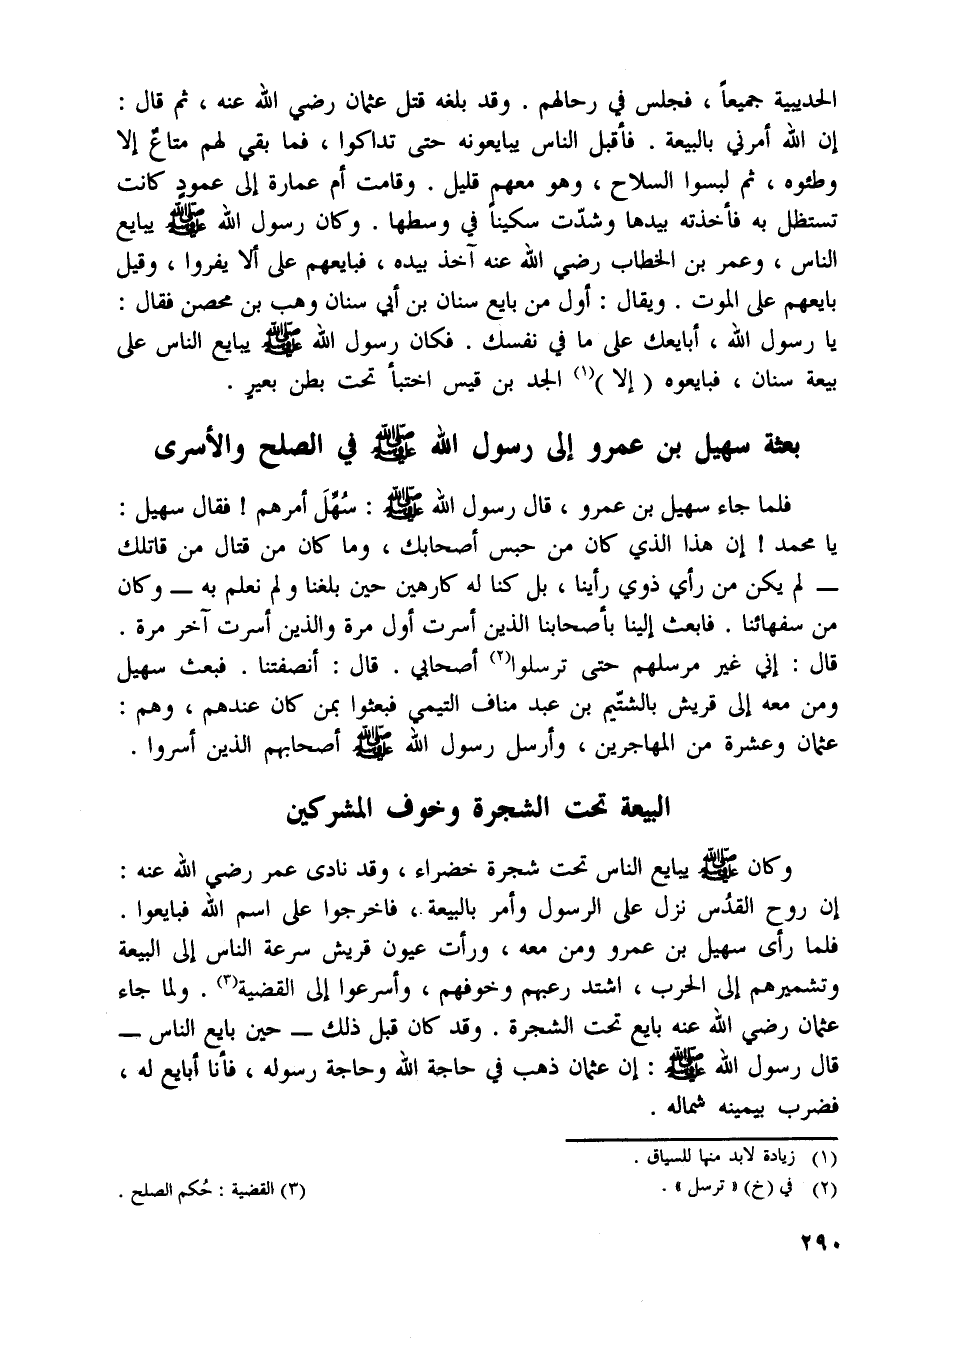 الحديبية جميعاً ، فجلس في رحالهم . وقد بلغه قتل عثمان رضي الله عنه ، ثم قال :
إن الله أمرني بالبيعة . فأقبل الناس يبايعونه حتى تداكوا ، فما بقي لهم متاعٌ إلا
وطئوه ، ثم لبسوا السلاح ، وهو معهم قليل . وقامت أم عمارة إلى عمودٍ كانت
تستظل به فأخذته بيدها وشدّت سكيناً في وسطها . وكان رسول الله ﷺ يبايع
الناس ، وعمر بن الخطاب رضي الله عنه آخذ بيده ، فبايعهم على ألا يفروا ، وقيل
بايعهم على الموت . ويقال : أول من بايع سنان بن أبي سنان وهب بن محصن فقال :
يا رسول الله ، أبايعك على ما في نفسك . فكان رسول الله ﷺ يبايع الناس على
بيعة سنان ، فبايعوه ( إلا )(١) الجد بن قيس اختبأ تحت بطن بعيرٍ .
بعثة سهيل بن عمرو إلى رسول الله ﷺ في الصلح والأسرى
فلما جاء سهيل بن عمرو ، قال رسول الله ﷺ : سُهِّلَ أمرهم ! فقال سهيل :
يا محمد ! إن هذا الذي كان من حبس أصحابك ، وما كان من قتال من قاتلك
ـــ لم يكن من رأي ذوي رأينا ، بل كنا له كارهين حين بلغنا ولم نعلم به ـــ وكان
من سفهائنا . فابعث إلينا بأصحابنا الذين أسرت أول مرة والذين أسرت آخر مرة .
قال : إني غير مرسلهم حتى ترسلوا(٢) أصحابي . قال : أنصفتنا . فبعث سهيل
ومن معه إلى قريش بالشتّيم بن عبد مناف التيمي فبعثوا بمن كان عندهم ، وهم :
عثمان وعشرة من المهاجرين ، وأرسل رسول الله ﷺ أصحابهم الذين أسروا .
البيعة تحت الشجرة وخوف المشركين
وكان ﷺ يبايع الناس تحت شجرة خضراء ، وقد نادى عمر رضي الله عنه :
إن روح القدُس نزل على الرسول وأمر بالبيعة ، فاخرجوا على اسم الله فبايعوا .
فلما رأى سهيل بن عمرو ومن معه ، ورأت عيون قريش سرعة الناس إلى البيعة
وتشميرهم إلى الحرب ، اشتد رعبهم وخوفهم ، وأسرعوا إلى القضية(٣) . ولما جاء
عثمان رضي الله عنه بايع تحت الشجرة . وقد كان قبل ذلك ـــ حين بايع الناس ـــ
قال رسول الله ﷺ : إن عثمان ذهب في حاجة الله وحاجة رسوله ، فأنا أبايع له ،
فضرب بيمينه شماله .
(١) زيادة لابد منها للسياق .
(٢) في (خ) « ترسل » .
(٣) القضية : حُكم الصلح .
٢٩٠